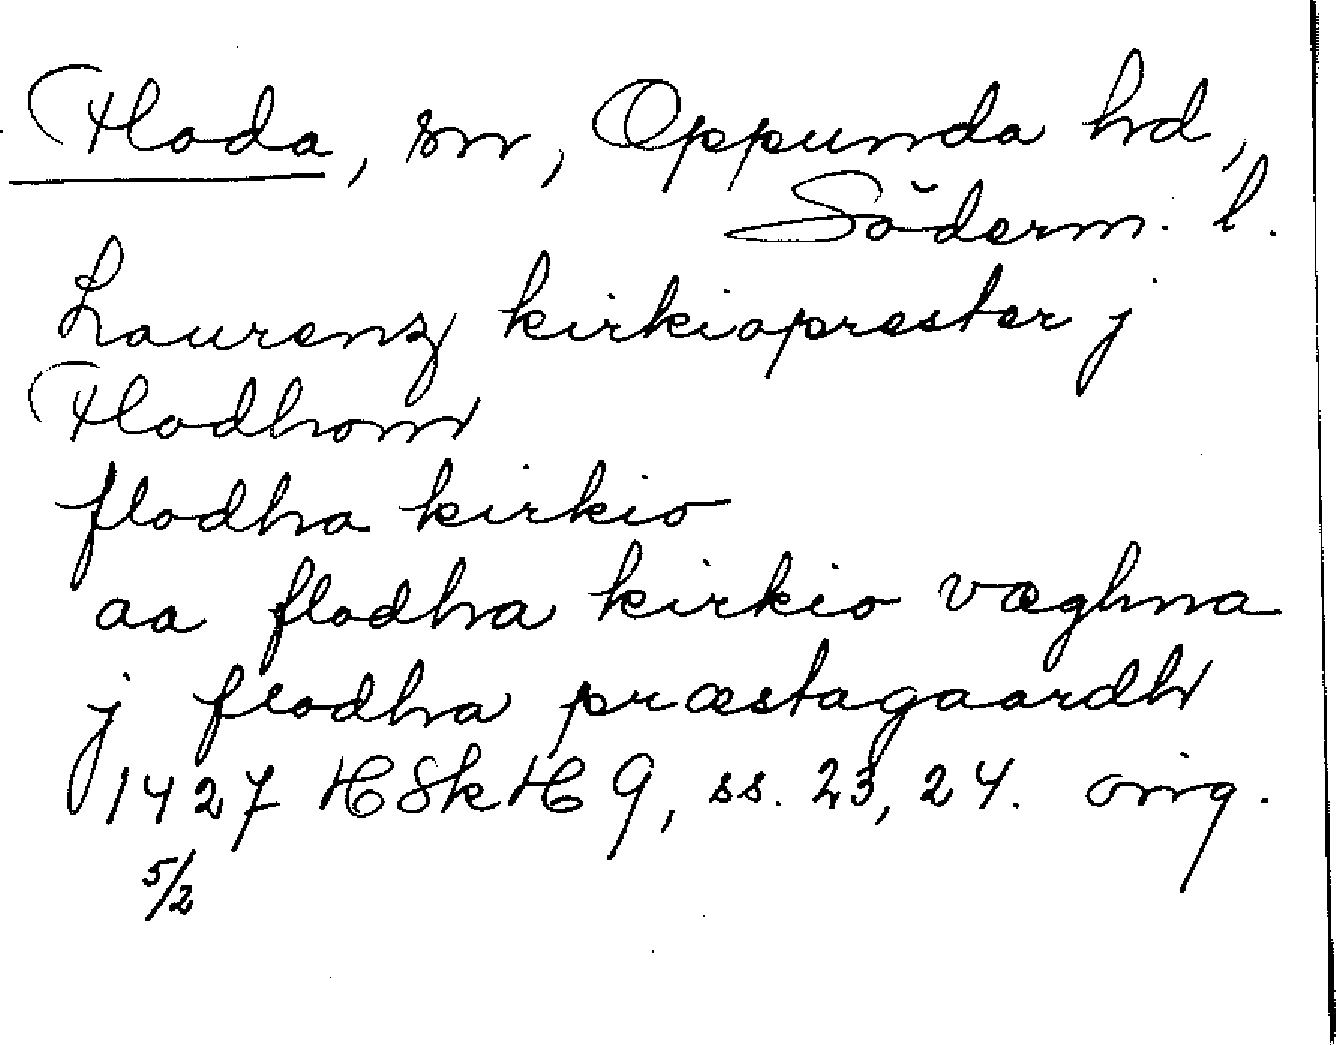 Floda, sn, Oppunda hd,
Söderm. l.
Laurenz kirkioprester j
Flodhom
flodha kirkio
aa flodha kirkio væghna
j flodha præstagaardh
1427 HSkH 9, ss. 23, 24. orig.
5/2